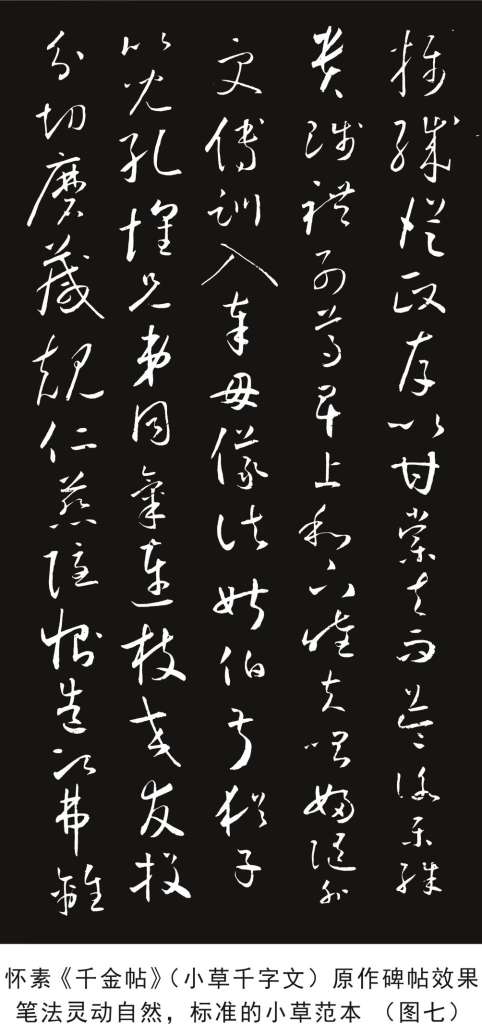 攝職從政存以甘棠去而益詠樂殊
貴賤禮別尊卑上和下睦夫唱婦隨外
受傅訓入奉母儀諸姑伯叔猶子
比兒孔懷兄弟同氣連枝交友投
分切磨箴規仁慈隱惻造次弗離
怀素《千金帖》（小草千字文）原作碑帖效果
笔法灵动自然，标准的小草范本 （图七）